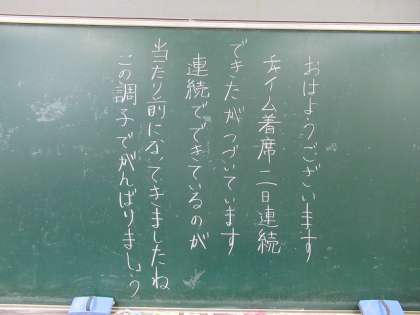 おはようございます
チャイム着席二日連続
できたがつづいています
連続でできているのが
当たり前になってきましたね
この調子でがんばりましょう